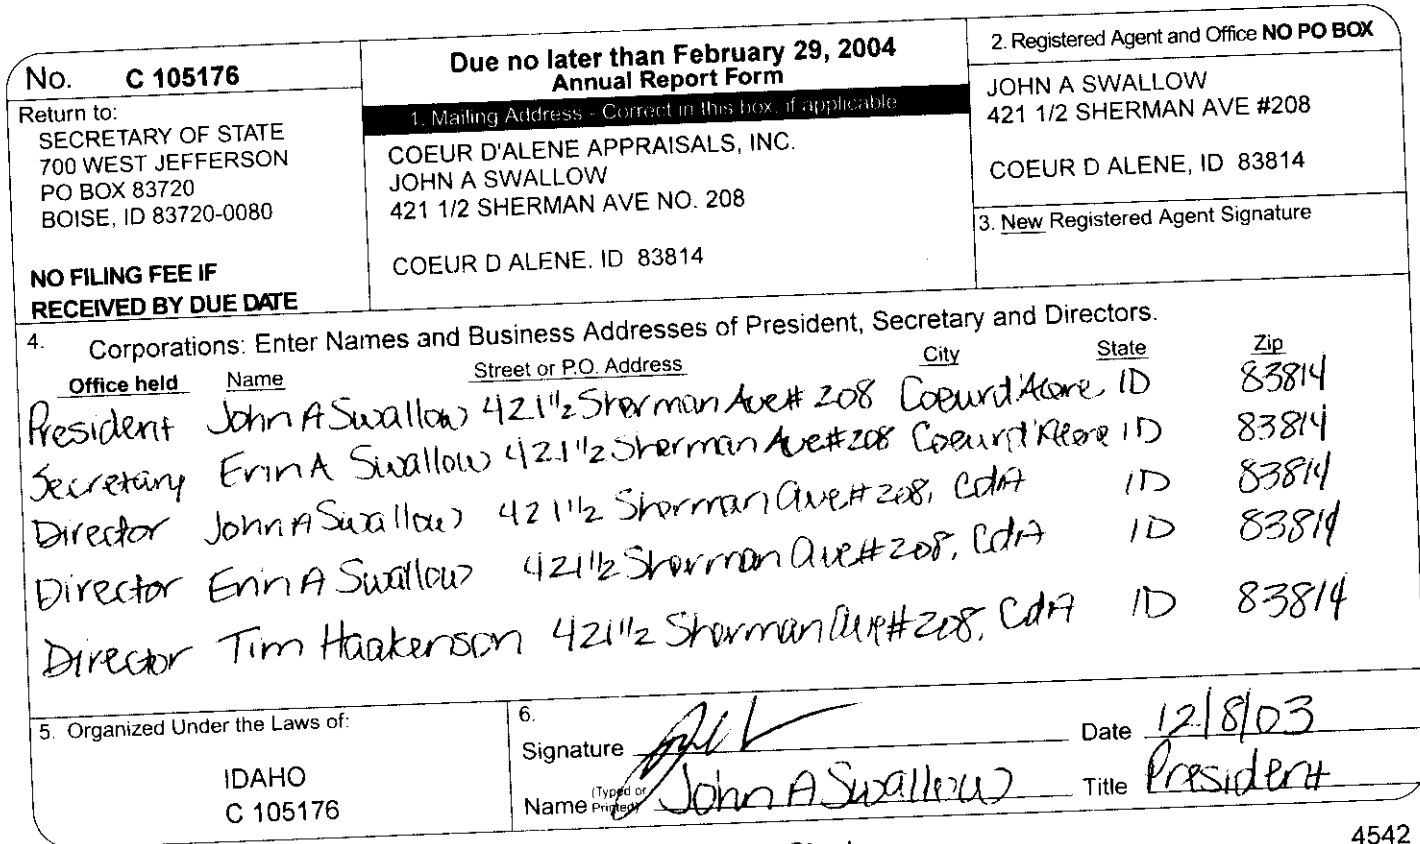 No. C 105176
Return to:
SECRETARY OF STATE
700 WEST JEFFERSON
PO BOX 83720
BOISE, ID 83720-0080
NO FILING FEE IF
RECEIVED BY DUE DATE
Due no later than February 29, 2004
Annual Report Form
1. Mailing Address - Correct in this box, if applicable
COEUR D'ALENE APPRAISALS, INC.
JOHN A SWALLOW
421 1/2 SHERMAN AVE NO. 208
COEUR D ALENE, ID 83814
2. Registered Agent and Office NO PO BOX
JOHN A SWALLOW
421 1/2 SHERMAN AVE #208
COEUR D ALENE, ID 83814
3. New Registered Agent Signature
4. Corporations: Enter Names and Business Addresses of President, Secretary and Directors.
Office held Name Street or P.O. Address City State Zip
President John A Swallow 421 1/2 Sherman Ave # 208 Coeur d'Alene, ID 83814
Secretary Erin A Swallow 421 1/2 Sherman Ave #208 Coeur d'Alene ID 83814
Director John A Swallow 421 1/2 Sherman Ave # 208, CdA ID 83814
Director Erin A Swallow 421 1/2 Sherman Ave #208, CdA ID 83814
Director Tim Haakenson 421 1/2 Sherman Ave #208, CdA ID 83814
5. Organized Under the Laws of:
IDAHO
C 105176
6.
Signature Date 12/8/03
Name (Typed or Printed) John A Swallow Title President
4542